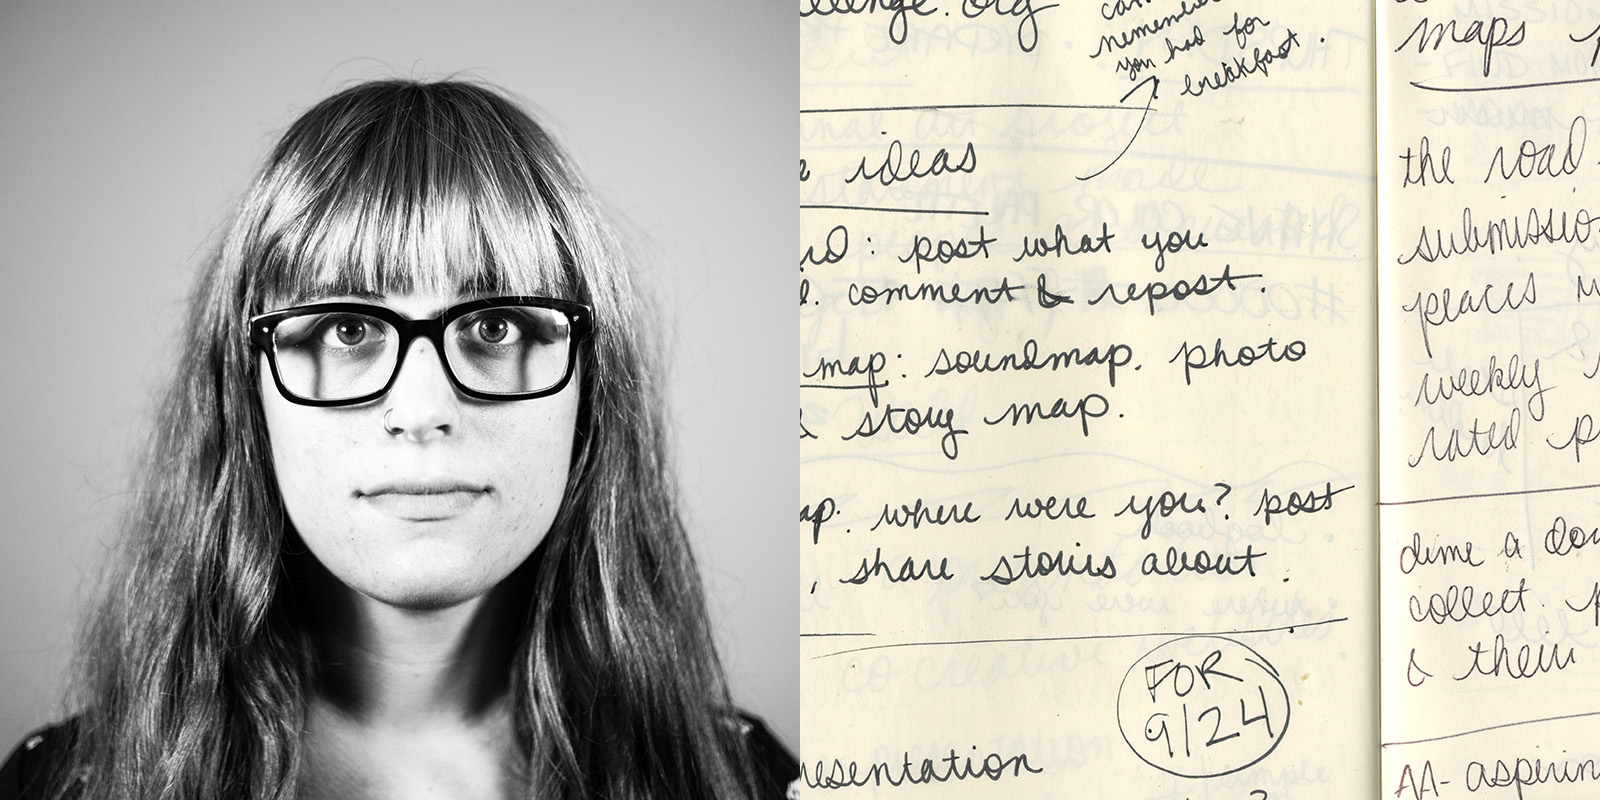 llenge.org
remember
you had for
breakfast.
ideas
: post what you
comment & repost.
map: soundmap. photo
& story map.
ap. where were you? post
, share stories about.
FOR
9/24
resentation
maps
the road
submissio
places
weekly
rated
dime a
collect.
& their
AA- aspirin